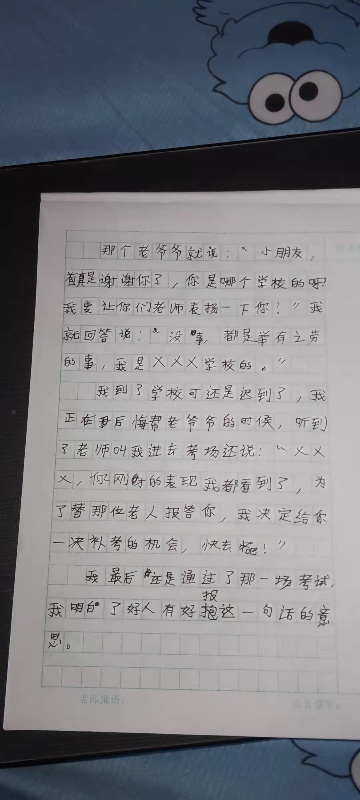 那个老爷爷就说：“小朋友，
真是谢谢你了，你是哪个学校的呀
我要让你们老师表扬一下你！”我
就回答说：“没事，都是举有之劳
的事，我是XXX学校的。”
我到了学校可还是迟到了，我
正在后悔帮老爷爷的时候，听到
了老师叫我进去考场还说：“XX
X，你刚才的表现我都看到了，为
了替那位老人报答你，我决定给你
一次补考的机会，快去吧！”
我最后还是通过了那一场考试，
报
我明白了好人有好抱这一句话的意
思。
老师评语：
家长签字：